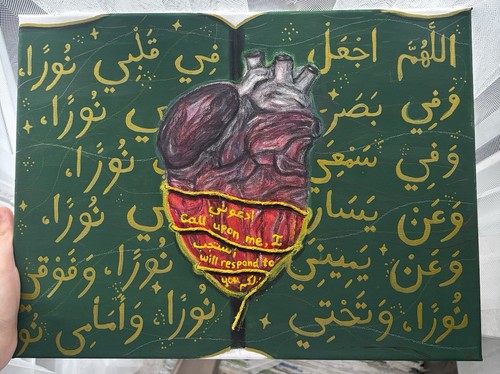 اللَّهُمَّ اجْعَلْ فِي قَلْبِي نُورًا،
وَفِي بَصَرِي نُورًا،
وَفِي سَمْعِي نُورًا،
وَعَنْ يَسَارِي نُورًا،
وَعَنْ يَمِينِي نُورًا، وَفَوْقِي
نُورًا، وَتَحْتِي نُورًا، وَأَمَامِي نُو
ادعوني
Call upon me, I
أستجب
will respond to
you لكم